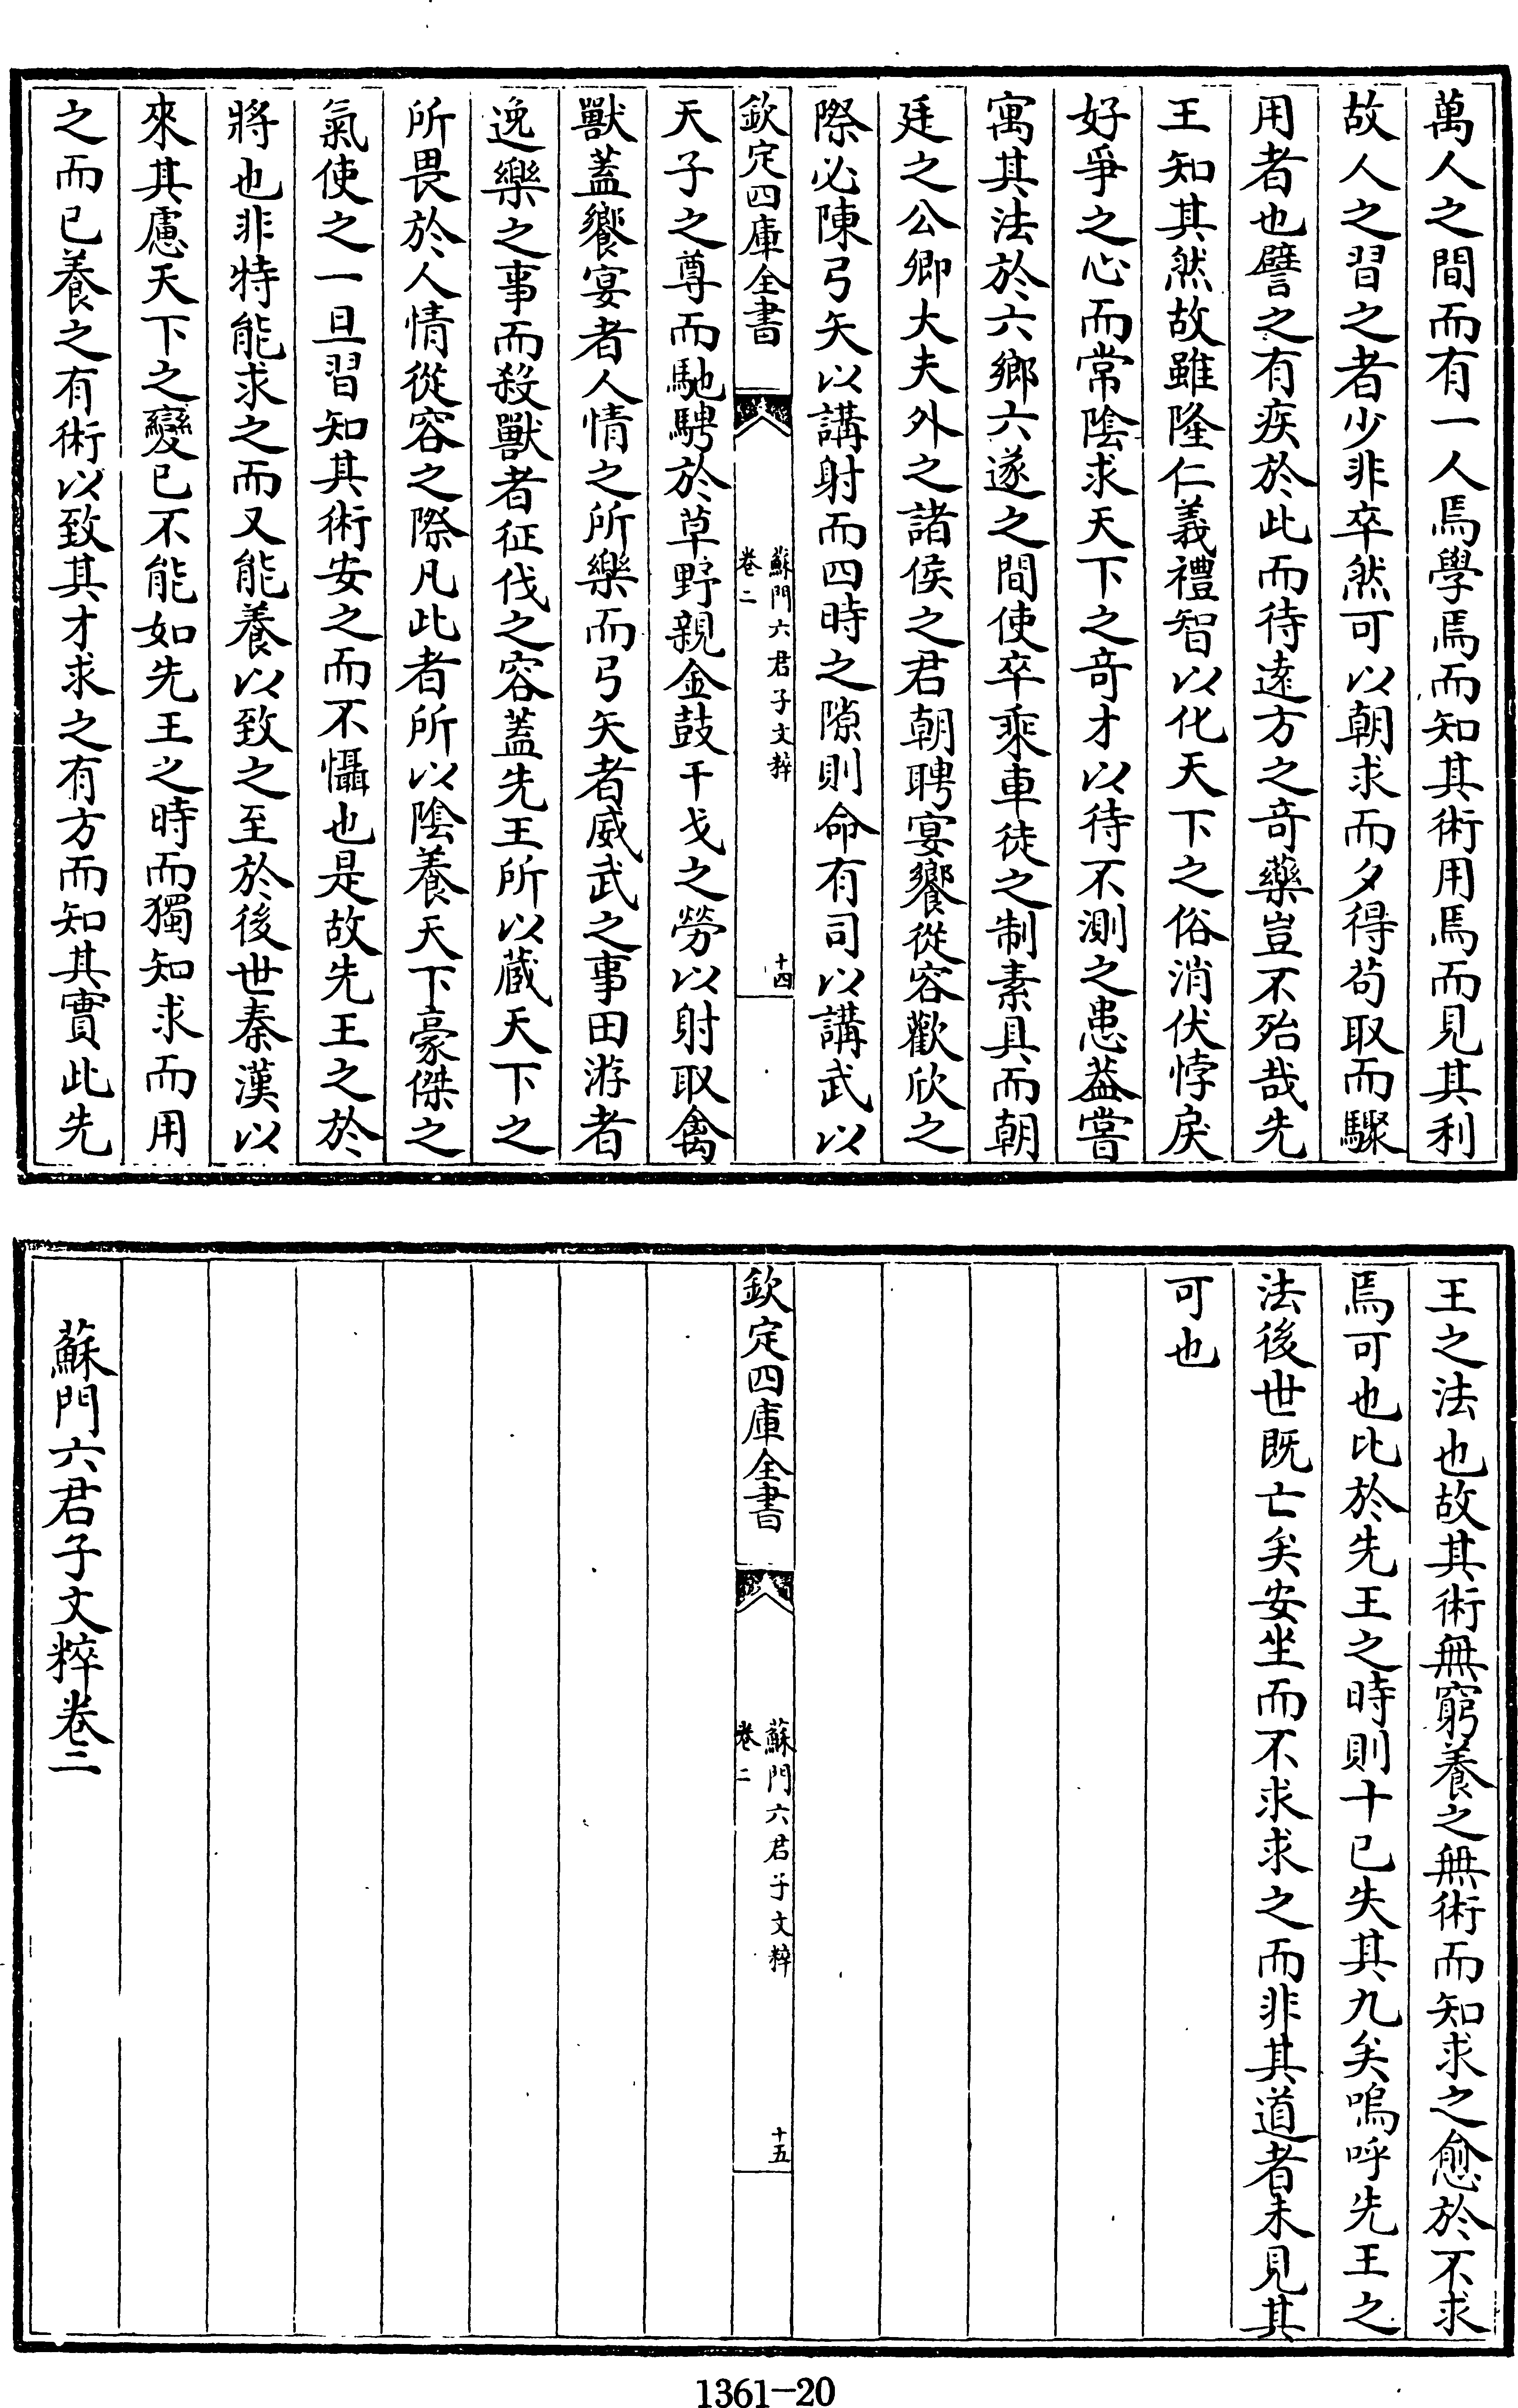 萬人之間而有一人焉學焉而知其術用焉而見其利
故人之習之者少非卒然可以朝求而夕得茍取而驟
用者也譬之有疾於此而待遠方之竒藥豈不殆哉先
王知其然故雖隆仁義禮智以化天下之俗消伏悖戾
好爭之心而常陰求天下之竒才以待不測之患葢嘗
寓其法於六鄉六遂之間使卒乘車徒之制素具而朝
廷之公卿大夫外之諸侯之君朝聘宴饗從容歡欣之
際必陳弓矢以講射而四時之隙則命有司以講武以
欽定四庫全書
蘇門六君子文粹
卷二
十四
天子之尊而馳騁於草野親金鼓干戈之勞以射取禽
獸蓋饗宴者人情之所樂而弓矢者威武之事田游者
逸樂之事而殺獸者征伐之容蓋先王所以蔵天下之
所畏於人情從容之際凡此者所以陰養天下豪傑之
氣使之一旦習知其術安之而不懾也是故先王之於
將也非特能求之而又能養以致之至於後世秦漢以
來其慮天下之變已不能如先王之時而獨知求而用
之而已養之有術以致其才求之有方而知其實此先
王之法也故其術無窮養之無術而知求之愈於不求
焉可也比於先王之時則十已失其九矣嗚呼先王之
法後世既亡矣安坐而不求求之而非其道者未見其
可也
欽定四庫全書
蘇門六君子文粹
卷二
十五
蘇門六君子文粹卷二
1361-20